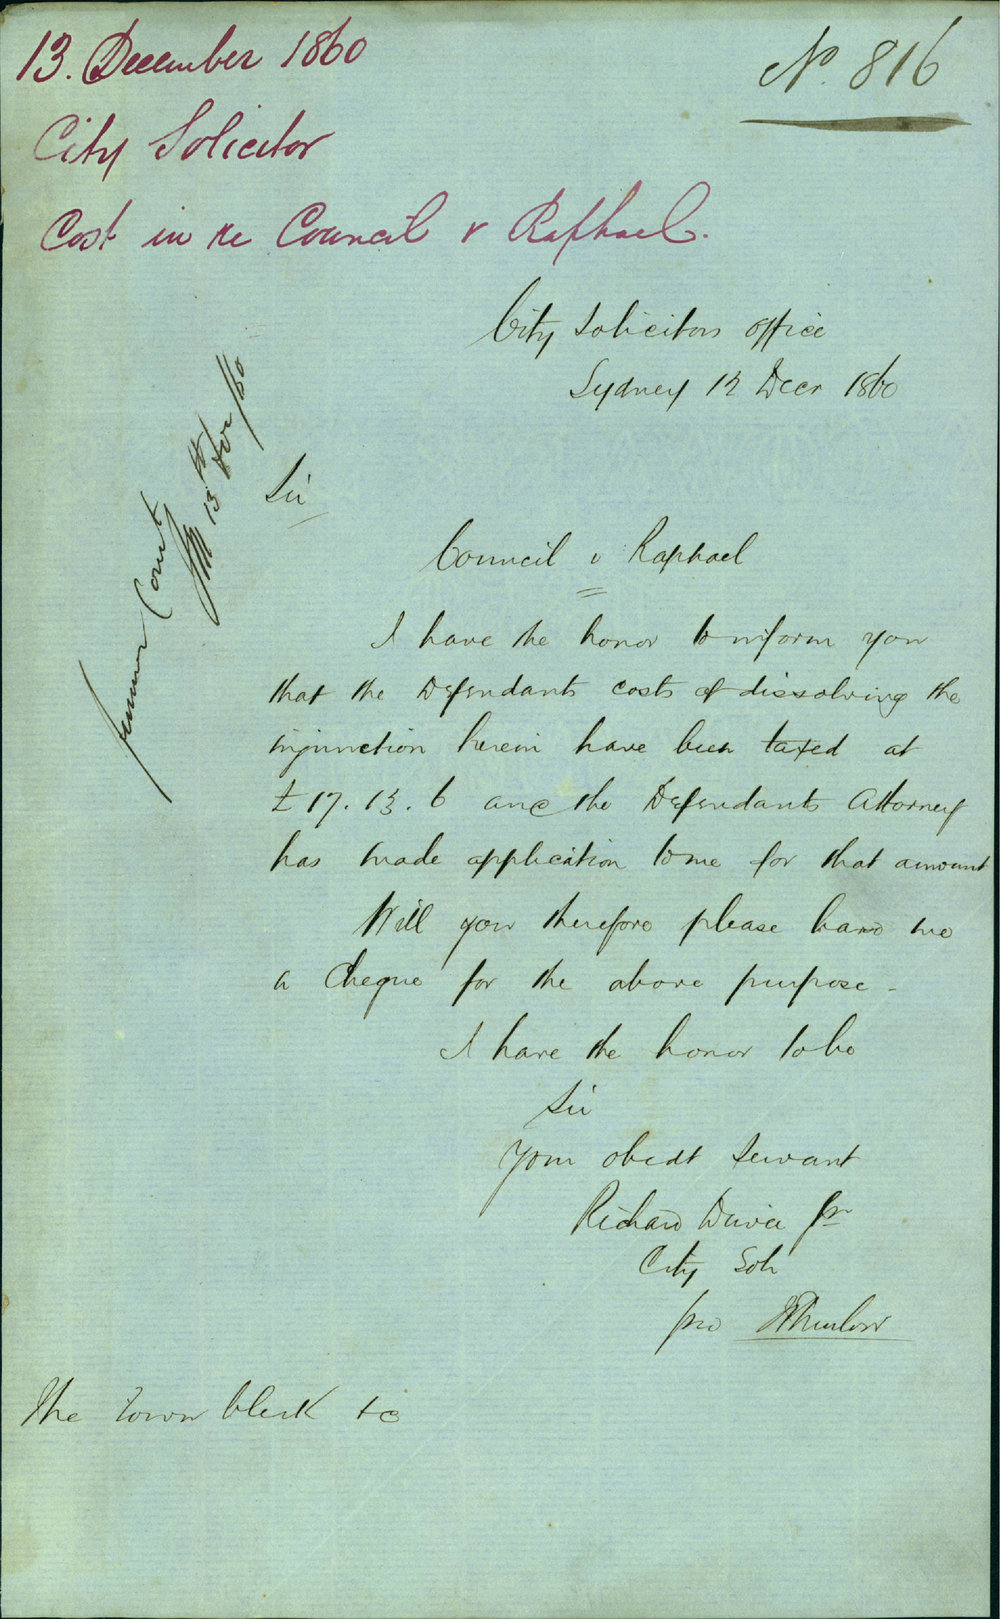 13. December 1860
No. 816
City Solicitor
Cost in re Council v Raphael.
City Solicitors office
Sydney 12 Decr 1860
Sir
Council v Raphael
I have the honor to inform you
that the Defendants costs of dissolving the
injunction herein have been taxed at
£17.13.6 and the Defendants Attorney
has made application to me for that amount
Will you therefore please hand me
a cheque for the above purpose -
I have the honor to be
Sir
Your obedt Servant
Richard Driver Jr
City Solr
pro
The Town Clerk &c
Court
13th Dec/60